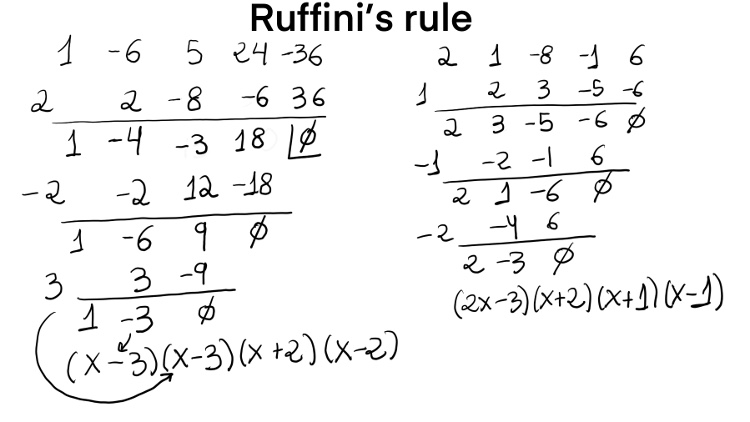 Ruffini's rule
1 -6 5 24 -36
2 2 -8 -6 36
1 -4 -3 18 0
-2 -2 12 -18
1 -6 9 0
3 3 -9
1 -3 0
(x-3)(x-3)(x+2)(x-2)
2 1 -8 -1 6
1 2 3 -5 -6
2 3 -5 -6 0
-1 -2 -1 6
2 1 -6 0
-2 -4 6
2 -3 0
(2x-3)(x+2)(x+1)(x-1)